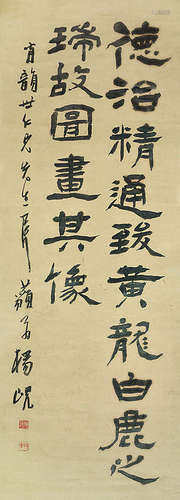 德治精通致黄龍白鹿之
瑞故圖畫其像
肖韻世仁兄先生屬 藐翁楊峴